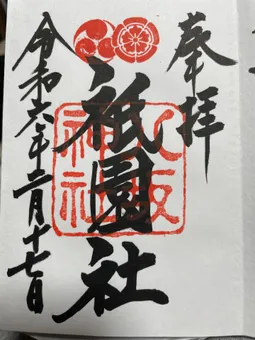 奉拝
祇園社
八坂神社
令和六年二月十七日